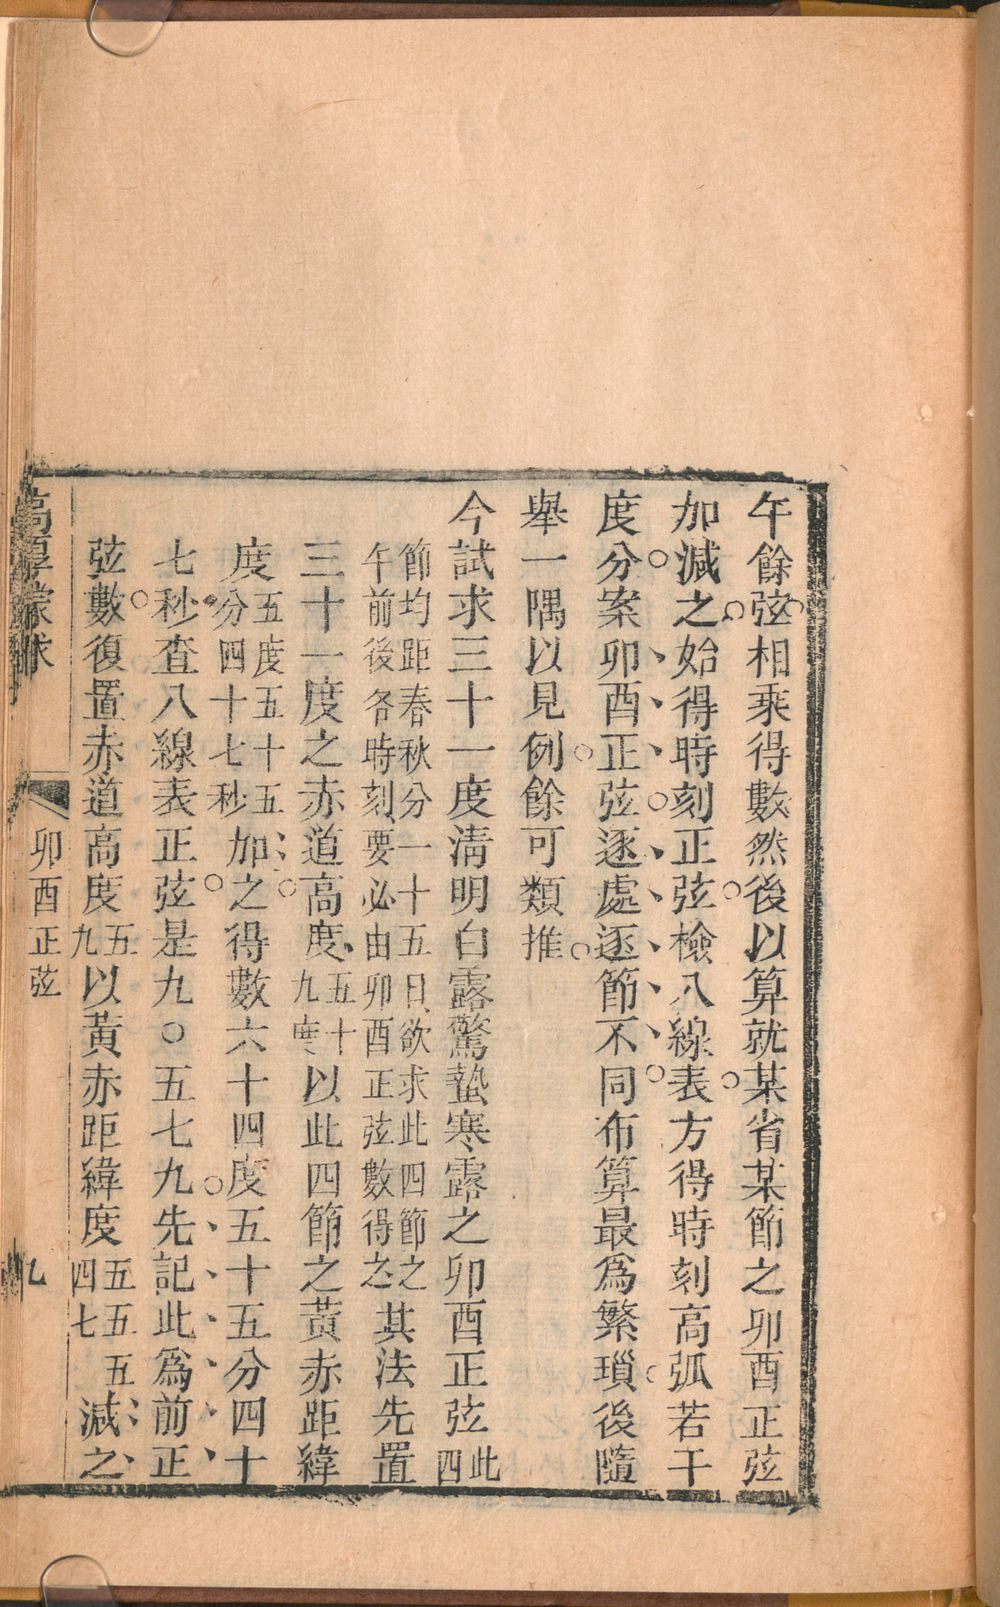 午餘弦相乘得數然後以算就某省某節之卯酉正弦
加減之始得時刻正弦檢八線表方得時刻高弧若干
度分案卯酉正弦逐處逐節不同布算最爲繁瑣後隨
舉一隅以見例餘可類推
今試求三十一度清明白露驚蟄寒露之卯酉正弦此四
節均距春秋分一十五日欲求此四節之午前後各時刻要必由卯酉正弦數得之其法先置
三十一度之赤道高度五十九度以此四節之黃赤距緯
度五度五十五分四十七秒加之得數六十四度五十五分四十
七秒查八線表正弦是九〇五七九先記此爲前正
弦數復置赤道高度五九以黃赤距緯度五五五四七減之
高厚蒙求
卯酉正弦
九